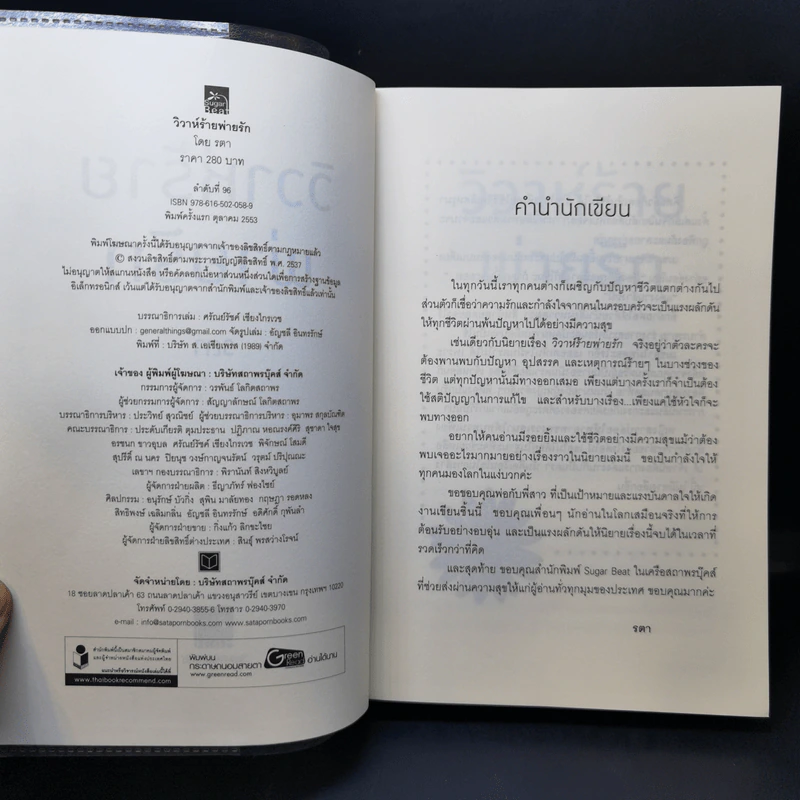 Sugar
Beat
วิวาห์ร้ายพ่ายรัก
โดย รตา
ราคา 280 บาท
ลำดับที่ 96
ISBN 978-616-502-058-9
พิมพ์ครั้งแรก ตุลาคม 2553
พิมพ์โฆษณาครั้งนี้ได้รับอนุญาตจากเจ้าของลิขสิทธิ์ตามกฎหมายแล้ว
© สงวนลิขสิทธิ์ตามพระราชบัญญัติลิขสิทธิ์ พ.ศ. 2537
ไม่อนุญาตให้สแกนหนังสือ หรือคัดลอกเนื้อหาส่วนหนึ่งส่วนใดเพื่อการสร้างฐานข้อมูล
อิเล็กทรอนิกส์ เว้นแต่ได้รับอนุญาตจากสำนักพิมพ์และเจ้าของลิขสิทธิ์แล้วเท่านั้น
บรรณาธิการเล่ม : ศรัณย์รัชต์ เชียงไกรเวช
ออกแบบปก : generalthings@gmail.com จัดรูปเล่ม : อัญชลี อินทรักษ์
พิมพ์ที่ : บริษัท ส. เอเชียเพรส (1989) จำกัด
เจ้าของ ผู้พิมพ์ผู้โฆษณา : บริษัทสถาพรบุ๊คส์ จำกัด
กรรมการผู้จัดการ : วรพันธ์ โลกิตสถาพร
ผู้ช่วยกรรมการผู้จัดการ : สัญญาลักษณ์ โลกิตสถาพร
บรรณาธิการบริหาร : ประวิทย์ สุวณิชย์ ผู้ช่วยบรรณาธิการบริหาร : อุมาพร สกุลบัณฑิต
คณะบรรณาธิการ : ประดับเกียรติ ตุมประธาน ปฏิภาณ หอณรงค์ศิริ สุชาดา ใจสุข
อรชนก ขาวอุบล ศรัณย์รัชต์ เชียงไกรเวช พิจักษณ์ โสมดี
สุปรีดิ์ ณ นคร ปิยนุช วงษ์กาญจนรัตน์ วรุตม์ ปริปุณณะ
เลขาฯ กองบรรณาธิการ : พิรานันท์ สิงหวิบูลย์
ผู้จัดการฝ่ายผลิต : ธีญาภัทร์ ฟองไชย์
ศิลปกรรม : อนุรักษ์ บัวกิ่ง สุพิน มาลัยทอง กฤษฎา รอดหลง
สิทธิพงษ์ เจลิมกลิ่น อัญชลี อินทรรักษ์ อดิศักดิ์ กุพันลำ
ผู้จัดการฝ่ายขาย : กิ่งแก้ว ลิกขะไชย
ผู้จัดการฝ่ายลิขสิทธิ์ต่างประเทศ : สินธุ์ พรสว่างโรจน์
จัดจำหน่ายโดย : บริษัทสถาพรบุ๊คส์ จำกัด
18 ซอยลาดปลาเค้า 63 ถนนลาดปลาเค้า แขวงอนุสาวรีย์ เขตบางเขน กรุงเทพฯ 10220
โทรศัพท์ 0-2940-3855-6 โทรสาร 0-2940-3970
e-mail : info@satapornbooks.com, www.satapornbooks.com
สำนักพิมพ์นี้เป็นสมาชิกสมาคมผู้จัดพิมพ์
และผู้จำหน่ายหนังสือแห่งประเทศไทย
แนะนำหรือวิจารณ์หนังสือเล่มนี้ได้ที่
www.thaibookrecommend.com
พิมพ์บน
กระดาษถนอมสายตา
www.greenread.com
Green
Read
อ่านได้นาน
คำนำนักเขียน
ในทุกวันนี้เราทุกคนต่างก็เผชิญกับปัญหาชีวิตแตกต่างกันไป
ส่วนตัวก็เชื่อว่าความรักและกำลังใจจากคนในครอบครัวจะเป็นแรงผลักดัน
ให้ทุกชีวิตผ่านพ้นปัญหาไปได้อย่างมีความสุข
เช่นเดียวกับนิยายเรื่อง วิวาห์ร้ายพ่ายรัก จริงอยู่ว่าตัวละครจะ
ต้องพานพบกับปัญหา อุปสรรค และเหตุการณ์ร้ายๆ ในบางช่วงของ
ชีวิต แต่ทุกปัญหานั้นมีทางออกเสมอ เพียงแต่บางครั้งเราก็จำเป็นต้อง
ใช้สติปัญญาในการแก้ไข และสำหรับบางเรื่อง...เพียงแค่ใช้หัวใจก็จะ
พบทางออก
อยากให้คนอ่านมีรอยยิ้มและใช้ชีวิตอย่างมีความสุขแม้ว่าต้อง
พบเจออะไรมากมายอย่างเรื่องราวในนิยายเล่มนี้ ขอเป็นกำลังใจให้
ทุกคนมองโลกในแง่บวกค่ะ
ขอขอบคุณพ่อกับพี่สาว ที่เป็นเป้าหมายและแรงบันดาลใจให้เกิด
งานเขียนชิ้นนี้ ขอบคุณเพื่อนๆ นักอ่านในโลกเสมือนจริงที่ให้การ
ต้อนรับอย่างอบอุ่น และเป็นแรงผลักดันให้นิยายเรื่องนี้จบได้ในเวลาที่
รวดเร็วกว่าที่คิด
และสุดท้าย ขอบคุณสำนักพิมพ์ Sugar Beat ในเครือสถาพรบุ๊คส์
ที่ช่วยส่งผ่านความสุขให้แก่ผู้อ่านทั่วทุกมุมของประเทศ ขอบคุณมากค่ะ
รตา